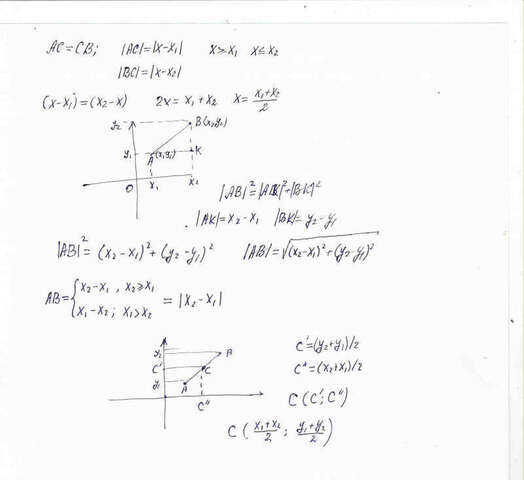 AC=CB; |AC|=|x-x₁| x>x₁ x≤x₂
|BC|=|x-x₂|
(x-x₁)=(x₂-x) 2x=x₁+x₂ x=(x₁+x₂)/2
y₂ B(x₂y₂)
y₁ A(x₁y₁) K
O x₁ x₂
|AB|²=|AK|²+|BK|²
|AK|=x₂-x₁ |BK|=y₂-y₁
|AB|²=(x₂-x₁)²+(y₂-y₁)² |AB|=√((x₂-x₁)²+(y₂-y₁)²)
AB={x₂-x₁, x₂≥x₁
x₁-x₂; x₁>x₂ =|x₂-x₁|
y₂
C' C
y₁ A
C"
C'=(y₂+y₁)/2
C"=(x₂+x₁)/2
C(C';C")
C((x₁+x₂)/2; (y₁+y₂)/2)